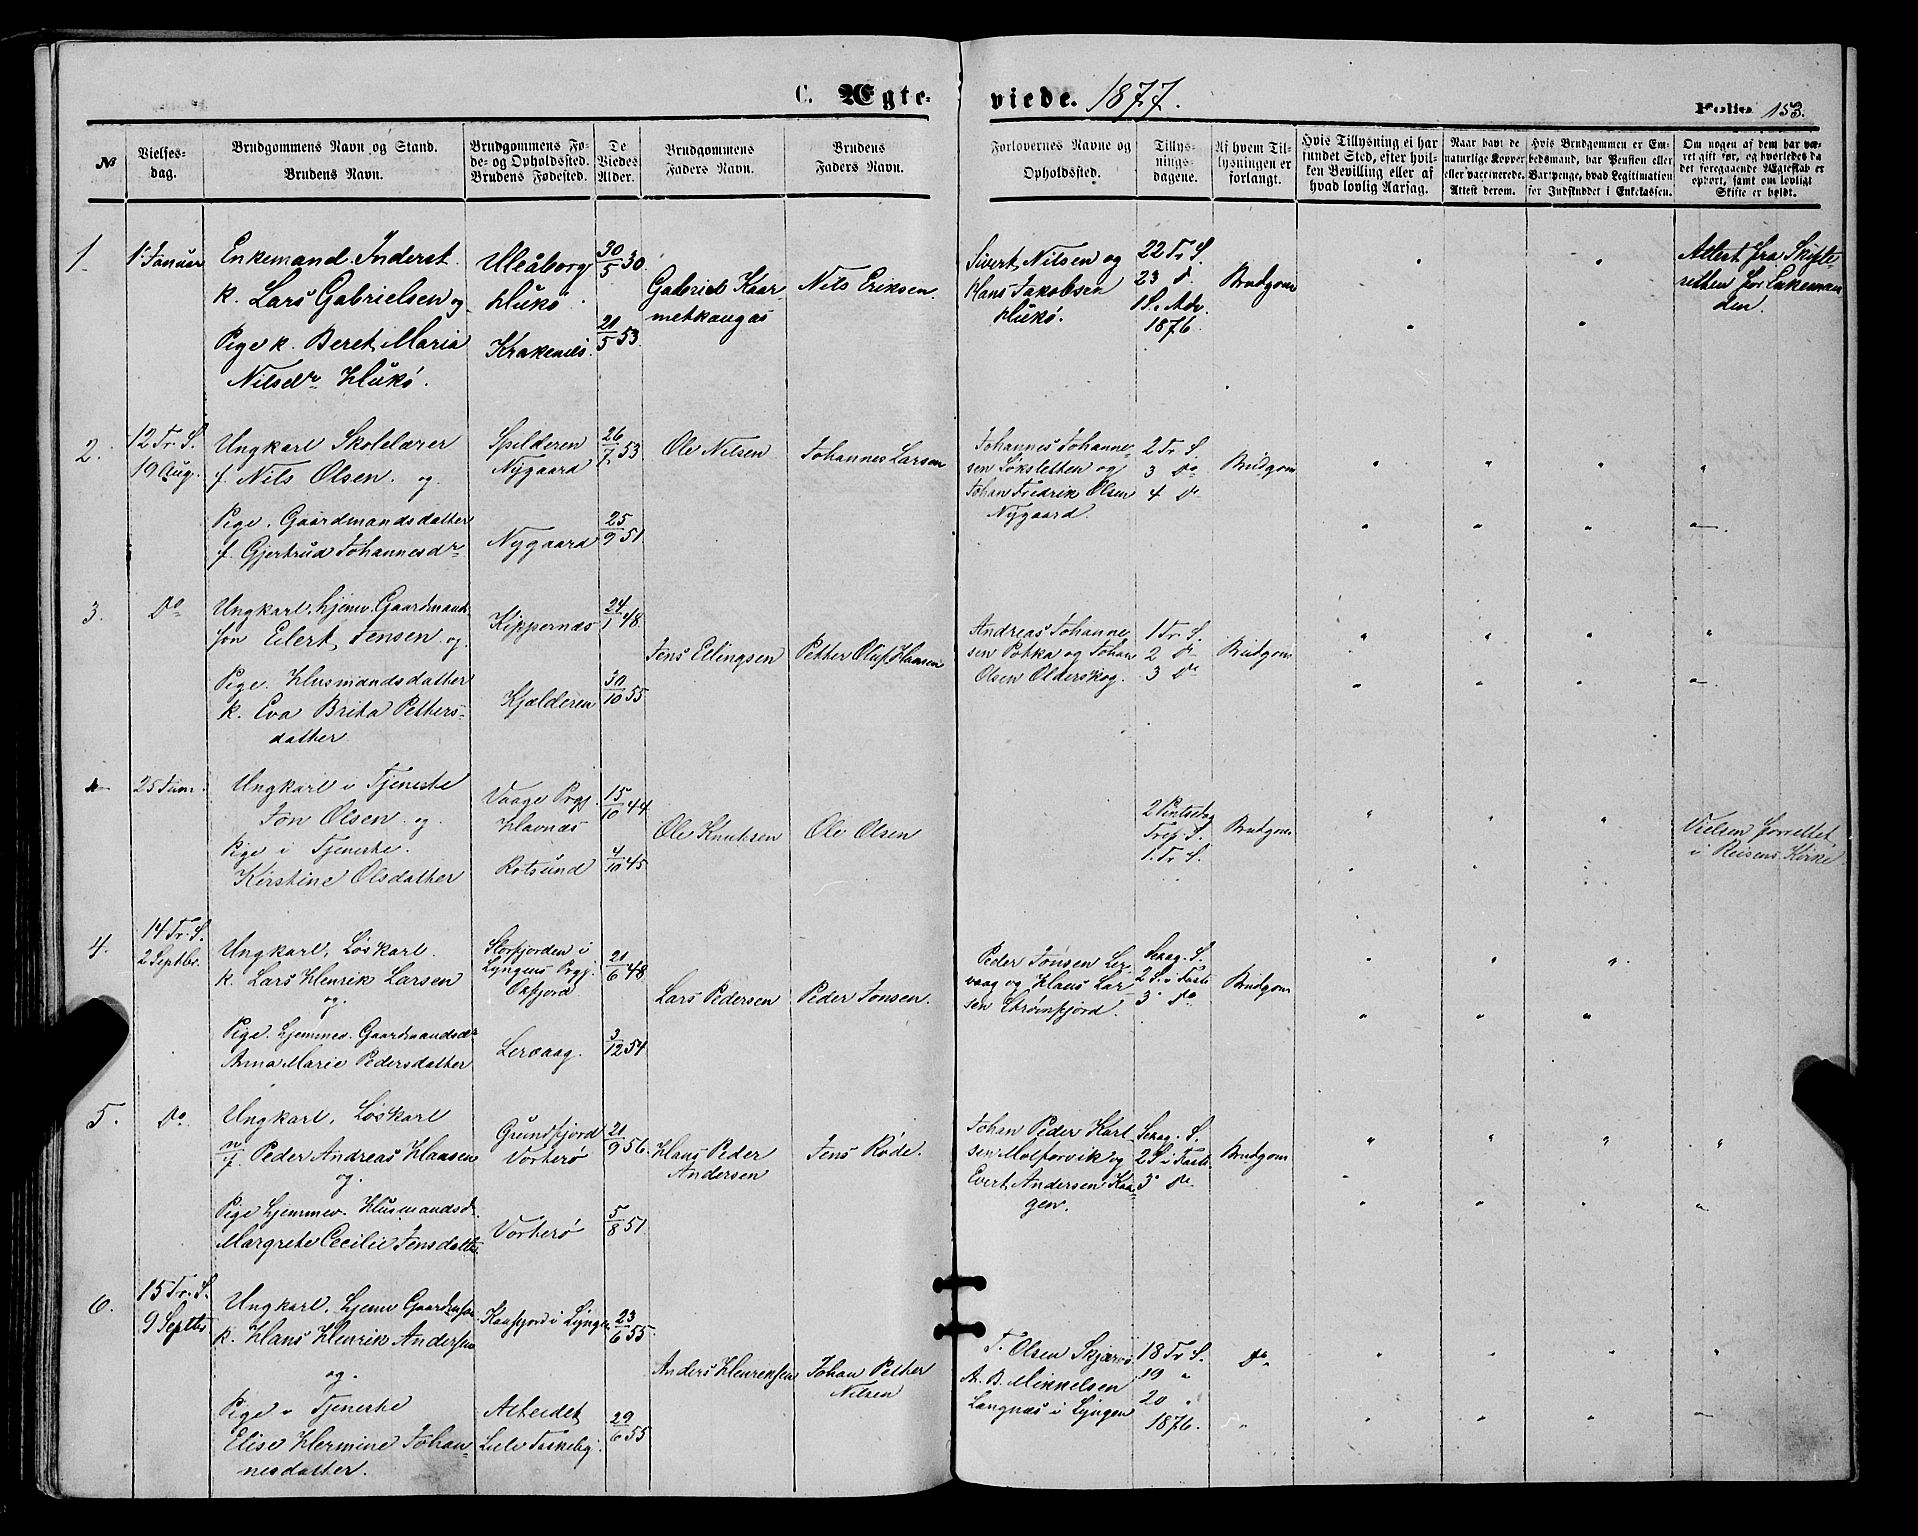 C. Ægteviede. 1877.
Folio 153.
№
Vielsesdag.
Brudgommens Navn og Stand.
Brudens Navn.
Brudgommens Føde- og Opholdssted.
Brudens Fødested.
De Viedes Alder.
Brudgommens Faders Navn.
Brudens Faders Navn.
Forlovernes Navne og Opholdssted.
Tillysningsdagene.
Af hvem Tillysningen er forlangt.
Hvis Tillysning ei har fundet Sted, efter hvilken Bevilling eller af hvad lovlig Aarsag.
Naar havt de naturlige Kopper eller vaccinerede. Attest derom.
Hvis Brudgommen er Embedsmand, har Pension eller Vartpenge, hvad Legitimation for Indskuddet i Enkekassen.
Om nogen af dem har været gift før, og hvorledes da det foregaaende Ægteskab er ophørt, samt om lovligt Skifte er holdt.
1.
1 Januar
Enkemand. Inderst.
k. Lars Gabrielsen og
Pige k. Beret Maria
Nilsdr Hukø.
Uleåborg
Hukø
Krakenæs.
30/5 30.
21/5 53
Gabriel Kaar-
metkangas
Nils Eriksen.
Sivert Nilsen og
Hans Jakobsen
Hukø.
22 Tr. S.
23 d
1 S. Adv.
1876.
Brudgom
Attest fra Skifte-
retten for Enkeman
den.
2.
12 Tr. S.
19 Aug.
Ungkarl Skolelærer
f. Nils Olsen. og
Pige. Gaardmandsdatter
f. Gjertrud Johannesdr
Spilderen
Nygaard
Nygaard
26/7 53
25/9 51
Ole Nilsen
Johannes Larsen
Johannes Johanne-
sen Løksletten og
Johan Fredrik Olsen
Nygaard.
2 Tr. S.
3 Do
4 Do
Brudgom
3.
Do
Ungkarl, hjemv. Gaardmands
søn Eilert Jensen og
Pige. Husmandsdatter
k. Eva Brita Petters-
datter
Kippernæs
Kjælderen
24/1 48.
30/10 55
Jens Ellingsen
Petter Oluf Hansen
Andreas Johanne
sen Pokka og Johan
Olsen Olderskog.
1 Tr. S.
2 Do
3 Do
Brudgom
25 Juni
Ungkarl i Tjeneste
Jon Olsen og
Pige i Tjeneste.
Kirstine Olsdatter
Vaage Prgj.
Havnæs
Rotsund
15/10 44.
4/10 45
Ole Knutsen
Ole Olsen
2 Pintsedag
Tref. S.
1. Tr. S.
Brudgom
Vielsen forrettet
i Reisens Kirke
4.
14 Tr. S.
2 Septbr.
Ungkarl, Løskarl.
k. Lars Henrik Larsen
og
Pige. hjemmev. Gaardmandsdr
Anna Marie Pedersdatter
Storfjorden i
Lyngens Prgj.
Oxfjord
Lervaag.
21/6 48
3/12 54
Lars Pedersen
Peder Jonsen.
Peder Jonsen Ler-
vaag og Hans Lar
sen Strømfjord.
Sexag. S.
2 S. i Faste
3 do
Brudgom
5.
Do
Ungkarl, Løskarl
n/f. Peder Andreas Hansen
og.
Pige hjemmev. Husmandsd.
Margrete Cecilie Jensdatter.
Grundfjord
Vorterø
Vorterø
21/9 56.
5/8 51.
Hans Peder
Andersen
Jens Røde.
Johan Peder Karl
sen Molforvik og
Evert Andersen Kaa
gen.
Sexag. S.
2 S. i Faste
3 do
Brudgom
6.
15 Tr. S.
9 Septbr
Ungkarl, hjemv Gaardmsøn
k. Hans Henrik Andersen
og.
Pige i Tjeneste
Elise Hermine Johan-
nesdatter.
Kaafjord i Lyngen
Arbeidet
23/6 55.
29/6 55
Anders Henriksen
Johan Petter
Nilsen
T. Olsen Skjærvø
A. B. Mikkelsen
Langnæs i Lyngen
18 Tr. S.
19 "
20 "
1876.
Do